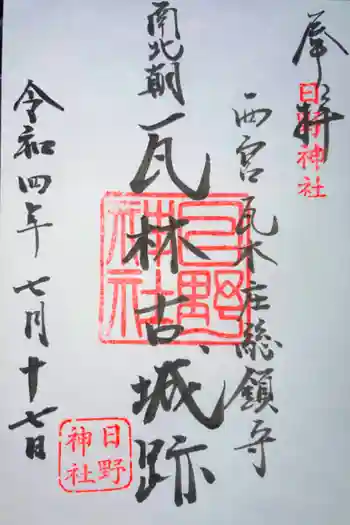 奉拝
日野神社
西宮瓦木庄総鎮守
南北朝
瓦林古城跡
日野神社
令和四年七月十七日
日野神社